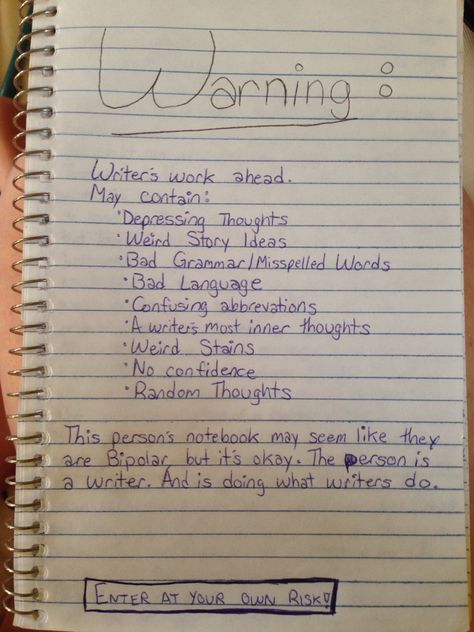 Warning:
Writer's work ahead.
May contain:
·Depressing Thoughts
·Weird Story Ideas
·Bad Grammar/Misspelled Words
·Bad Language
·Confusing abbrevations
·A writer's most inner thoughts
·Weird Stains
·No confidence
·Random Thoughts
This person's notebook may seem like they
are Bipolar, but it's okay. The person is
a writer. And is doing what writers do.
ENTER AT YOUR OWN RISK!